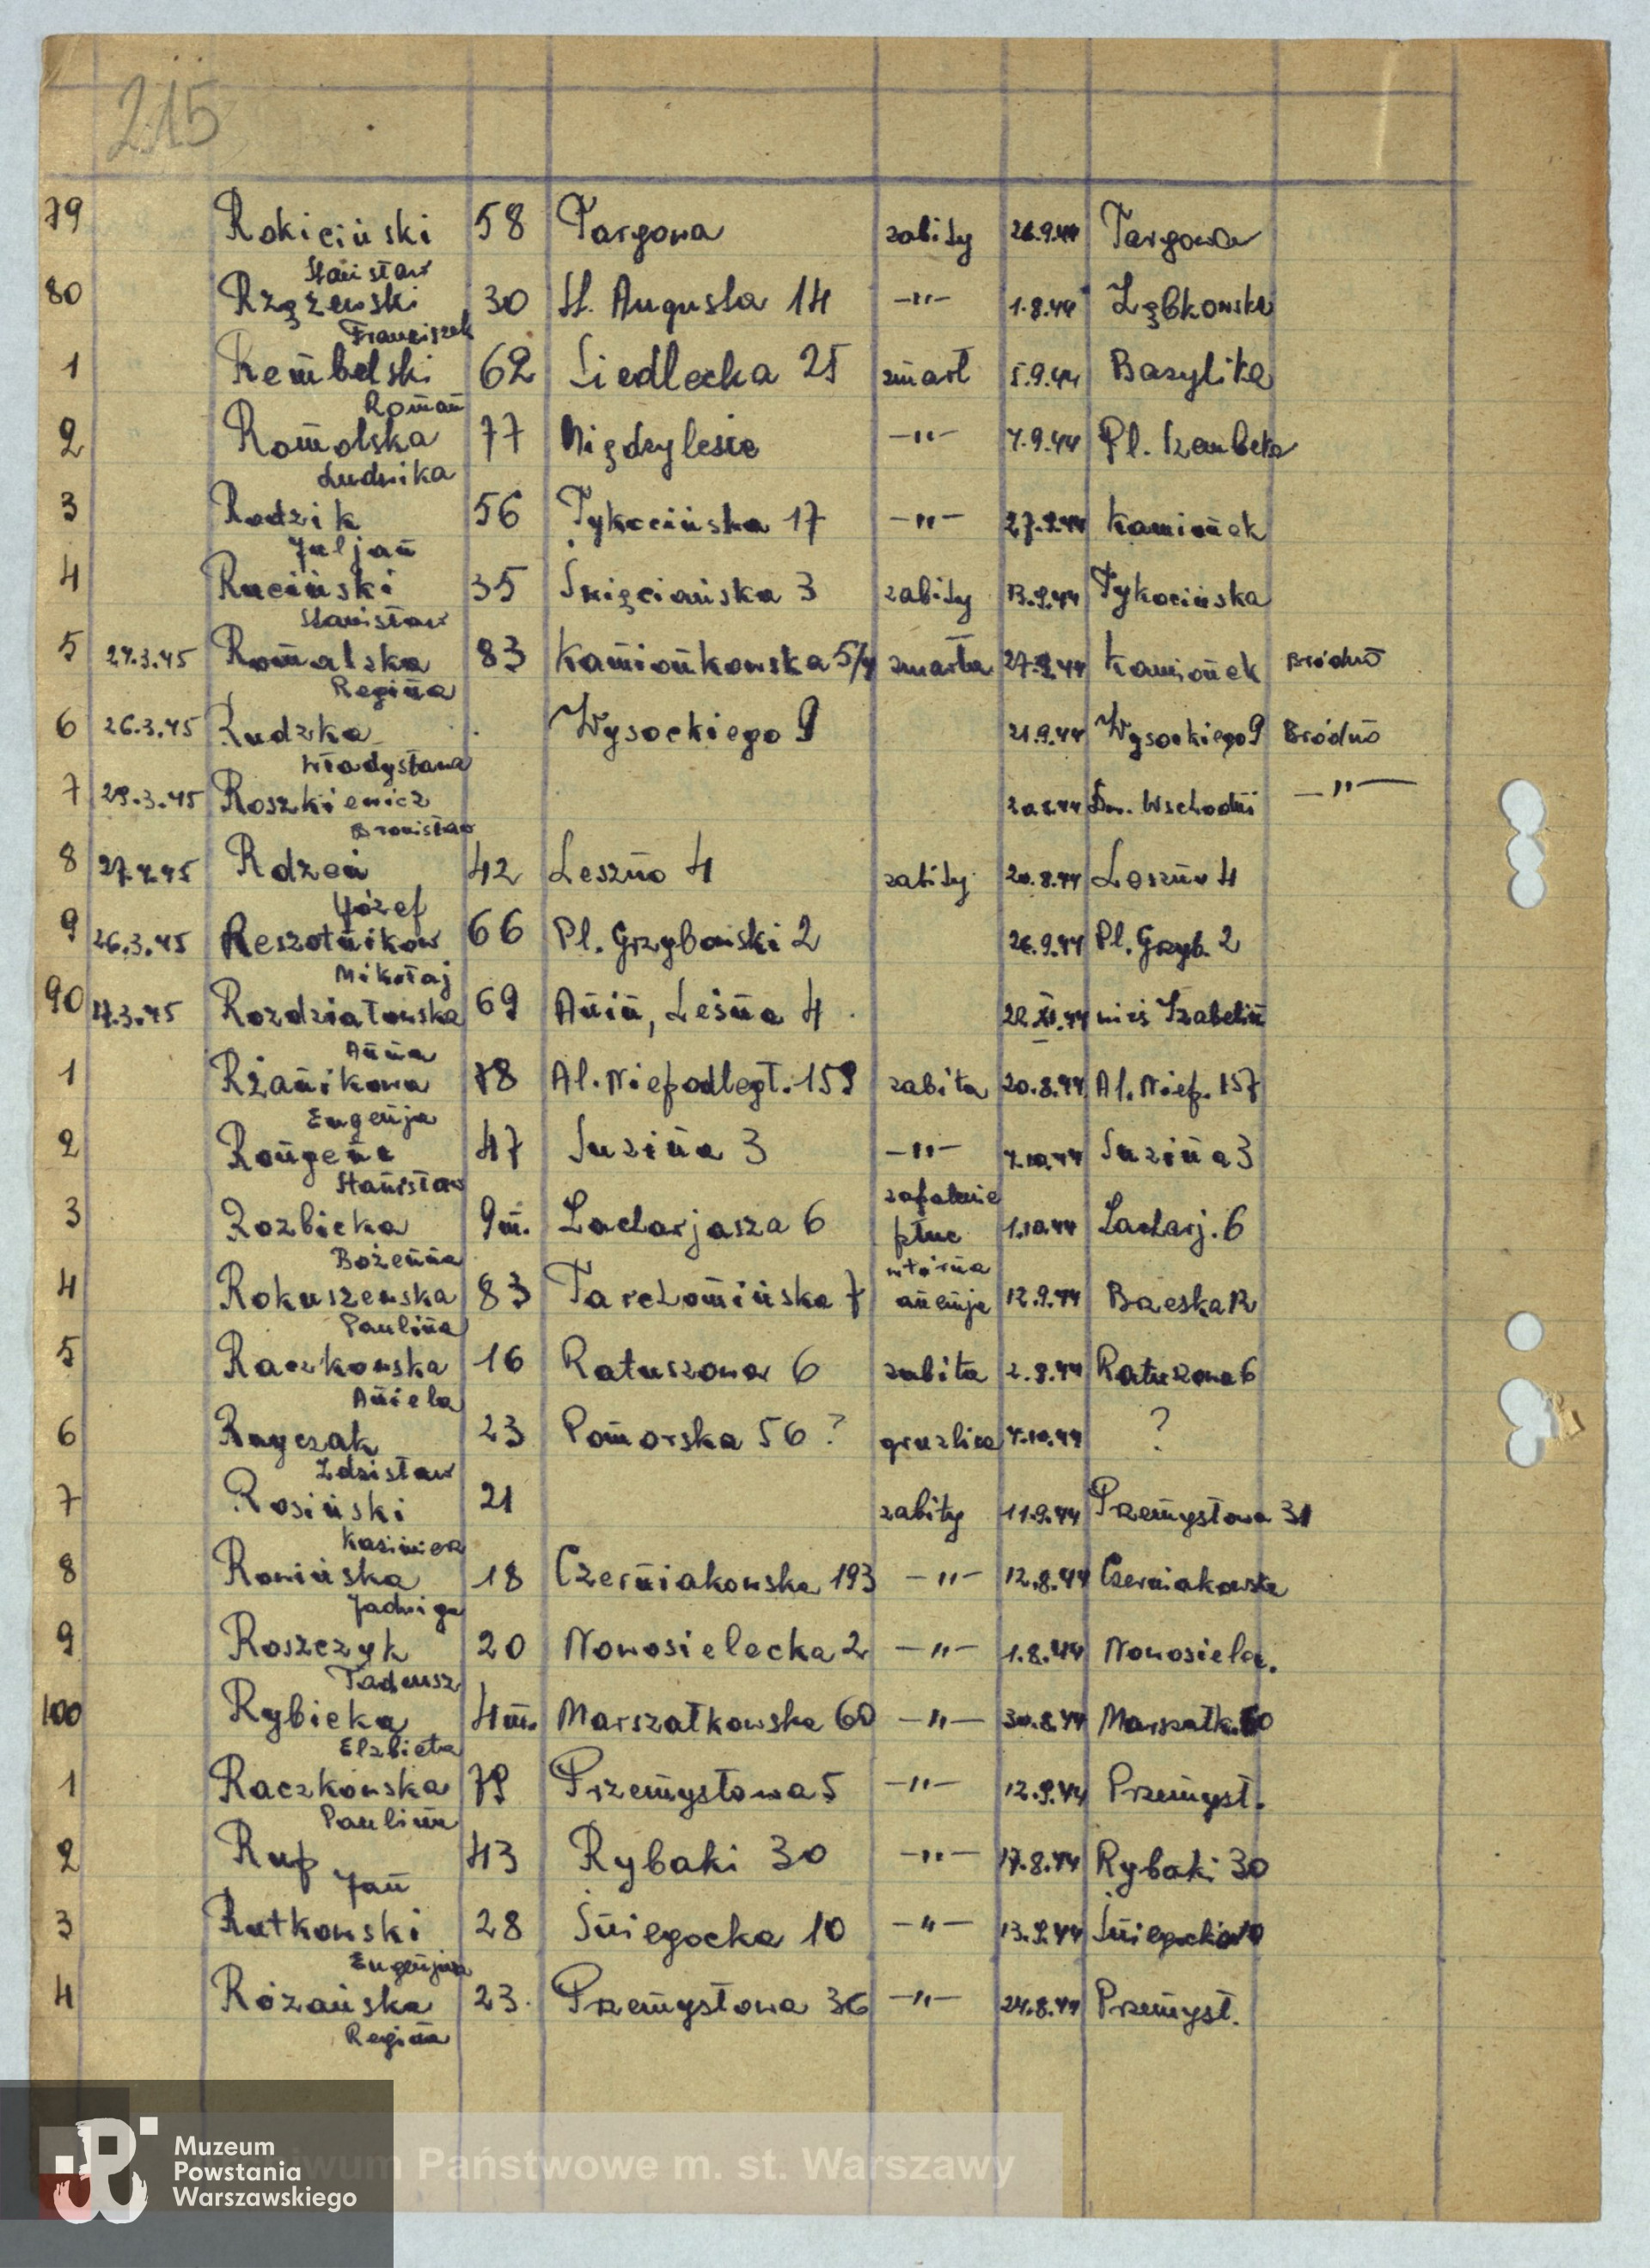 215
79 Rokiciński 58 Targowa zabity 26.9.44 Targowa
Stanisław
80 Rzężewski 30 St. Augusta 14 —"— 1.8.44 Ząbkowska
Franciszek
1 Rembelski 62 Siedlecka 25 zmarł 5.9.44 Bazylika
Roman
2 Romolska 77 Międzylesie —"— 7.9.44 Pl. Szembeka
Ludwika
3 Rodzik 56 Tykocińska 17 —"— 27.9.44 Kamionek
Juljan
4 Ruciński 35 Święciańska 3 zabity 13.9.44 Tykocińska
Stanisław
5 27.3.45 Romalska 83 Kamionkowska 5/7 zmarła 27.9.44 Kamionek Bródno
Regina
6 26.3.45 Rudzka Wysockiego 9 21.9.44 Wysockiego 9 Bródno
Władysława
7 29.3.45 Roszkiewicz 20.8.44 Dw. Wschodni —"—
Bronisław
8 27.4.45 Rdzeń 42 Leszno 4 zabity 20.8.44 Leszno 4
Józef
9 26.3.45 Reszotnikow 66 Pl. Grzybowski 2 26.9.44 Pl. Grzyb. 2
Mikołaj
90 17.3.45 Rozdziałowska 69 Anin, Leśna 4 22.XI.44 wieś Izabelin
Anna
1 Rżanikowa 78 Al. Niepodległ. 159 zabita 20.8.44 Al. Niep. 157
Eugenja
2 47 Suzina 3 —"— 7.10.44 Suzina 3
Stanisław
3 Rozbicka 9 m. Zacharjasza 6 zapalenie płuc 1.10.44 Zacharj. 6
Bożenna
4 Rokuszewska 83 Tarchomińska 7 wtórna anemja 12.9.44 Brzeska 12
Paulina
5 Raczkowska 16 Ratuszowa 6 zabita 2.8.44 Ratuszowa 6
Aniela
6 Rayczak 23 Pomorska 56 ? gruźlica 7.10.44 ?
Zdzisław
7 Rosiński 21 zabity 11.9.44 Przemysłowa 31
Kazimierz
8 Ronińska 18 Czerniakowska 193 —"— 12.8.44 Czerniakowska
Jadwiga
9 Roszczyk 20 Nowosielecka 2 —"— 1.8.44 Nowosiele.
Tadeusz
100 Rybicka 4 m. Marszałkowska 60 —"— 30.8.44 Marszałk. 60
Elżbieta
1 Raczkowska 79 Przemysłowa 5 —"— 12.9.44 Przemysł.
Paulina
2 Rup 43 Rybaki 30 —"— 17.8.44 Rybaki 30
Jan
3 Rutkowski 28 Śniegocka 10 —"— 13.9.44 Śniegocka 10
Eugenjusz
4 Różańska 23 Przemysłowa 36 —"— 24.8.44 Przemysł.
Regina
Muzeum
Powstania
Warszawskiego
wum Państwowe m. st. Warszawy